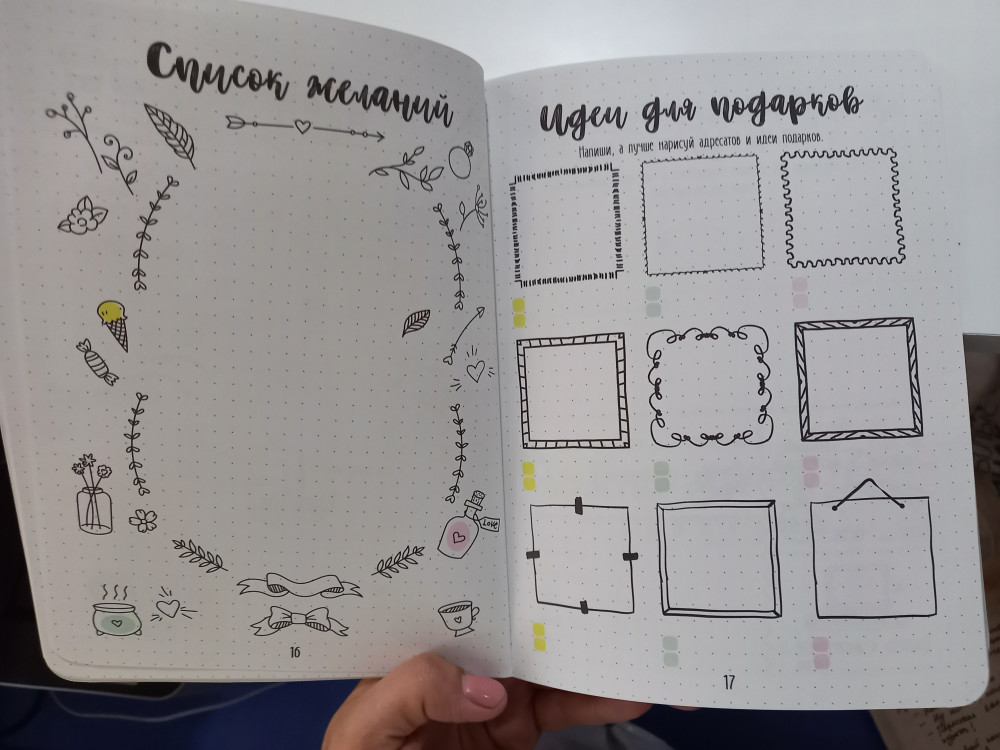 Список желаний
Love
16
Идеи для подарков
Напиши, а лучше нарисуй адресатов и идеи подарков.
17